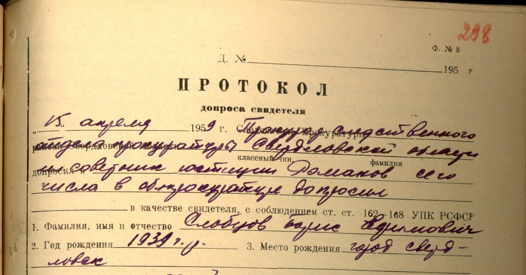 298
Ф. № 8
Д. № 195
ПРОТОКОЛ
допроса свидетеля
15 апреля 1959 г. Прокурор следственного
отдела прокуратуры Свердловской области
мл советник юстиции Романов сего
классный чин, фамилия
числа в облпрокуратуре допросил
в качестве свидетеля, с соблюдением ст. ст. 162-168 УПК РСФСР
1. Фамилия, имя и отчество Слобцов Борис Ефимович
2. Год рождения 1939 г. р. 3. Место рождения город Сверд-
ловск